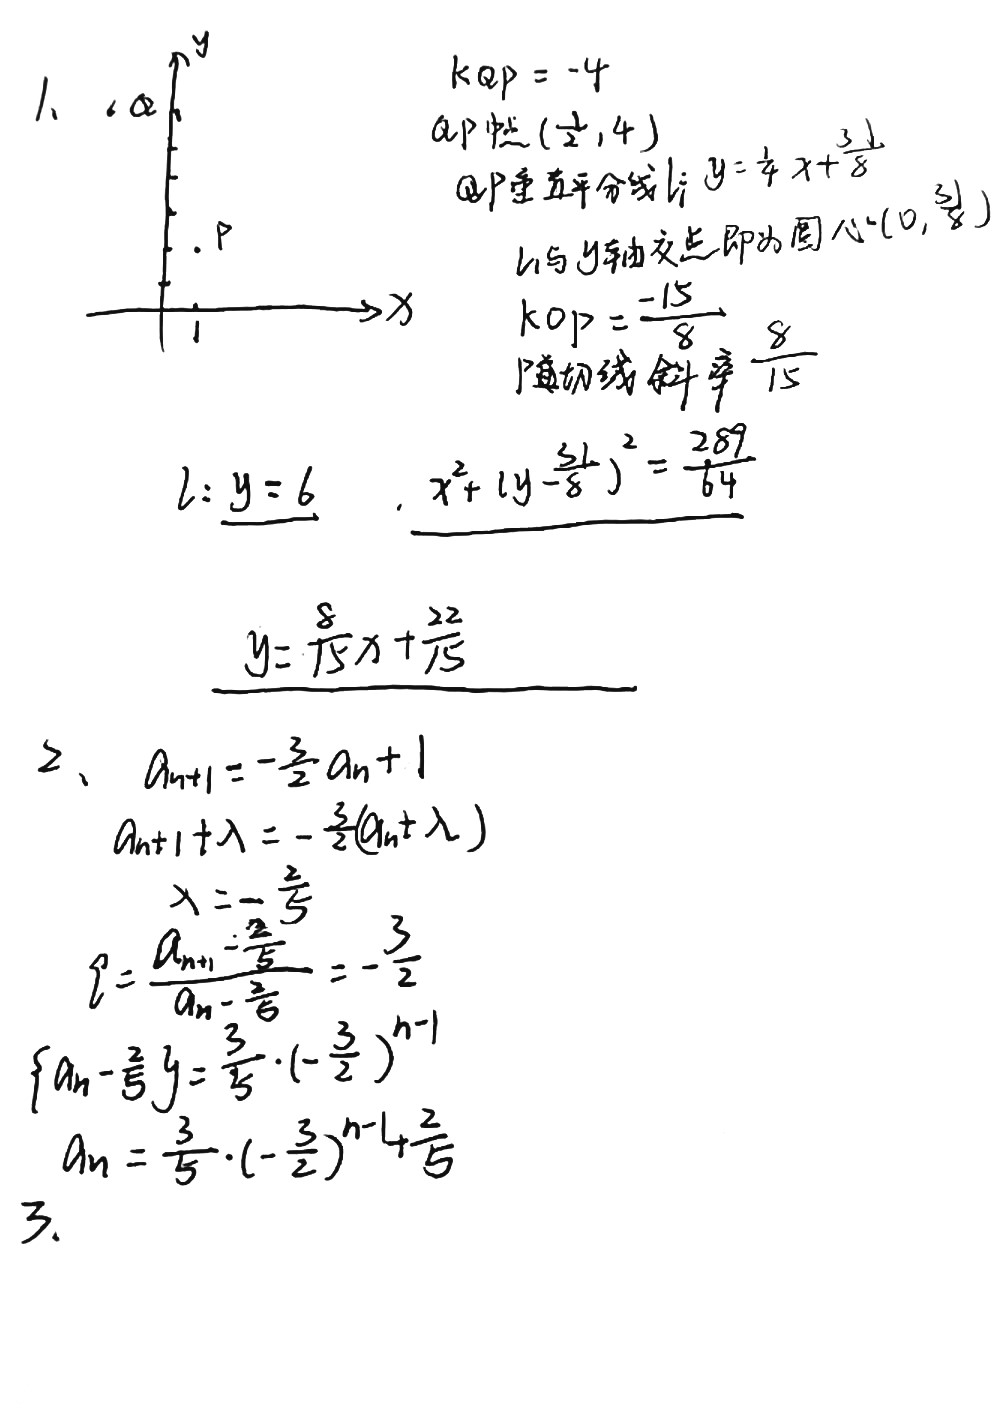 1、
y
Q
P
x
1
kQP = -4
QP中点(1/2, 4)
QP垂直平分线l₁: y = 1/4 x + 31/8
l₁与y轴交点即为圆心(0, 31/8)
kOP = -15/8
切线斜率 8/15
l: y = 6
x² + (y - 31/8)² = 289/64
y = 8/15 x + 22/15
2、 aₙ₊₁ = -3/2 aₙ + 1
aₙ₊₁ + λ = -3/2(aₙ + λ)
λ = -2/5
q = (aₙ₊₁ - 2/5)/(aₙ - 2/5) = -3/2
{aₙ - 2/5} = 3/5 · (-3/2)ⁿ⁻¹
aₙ = 3/5 · (-3/2)ⁿ⁻¹ + 2/5
3.